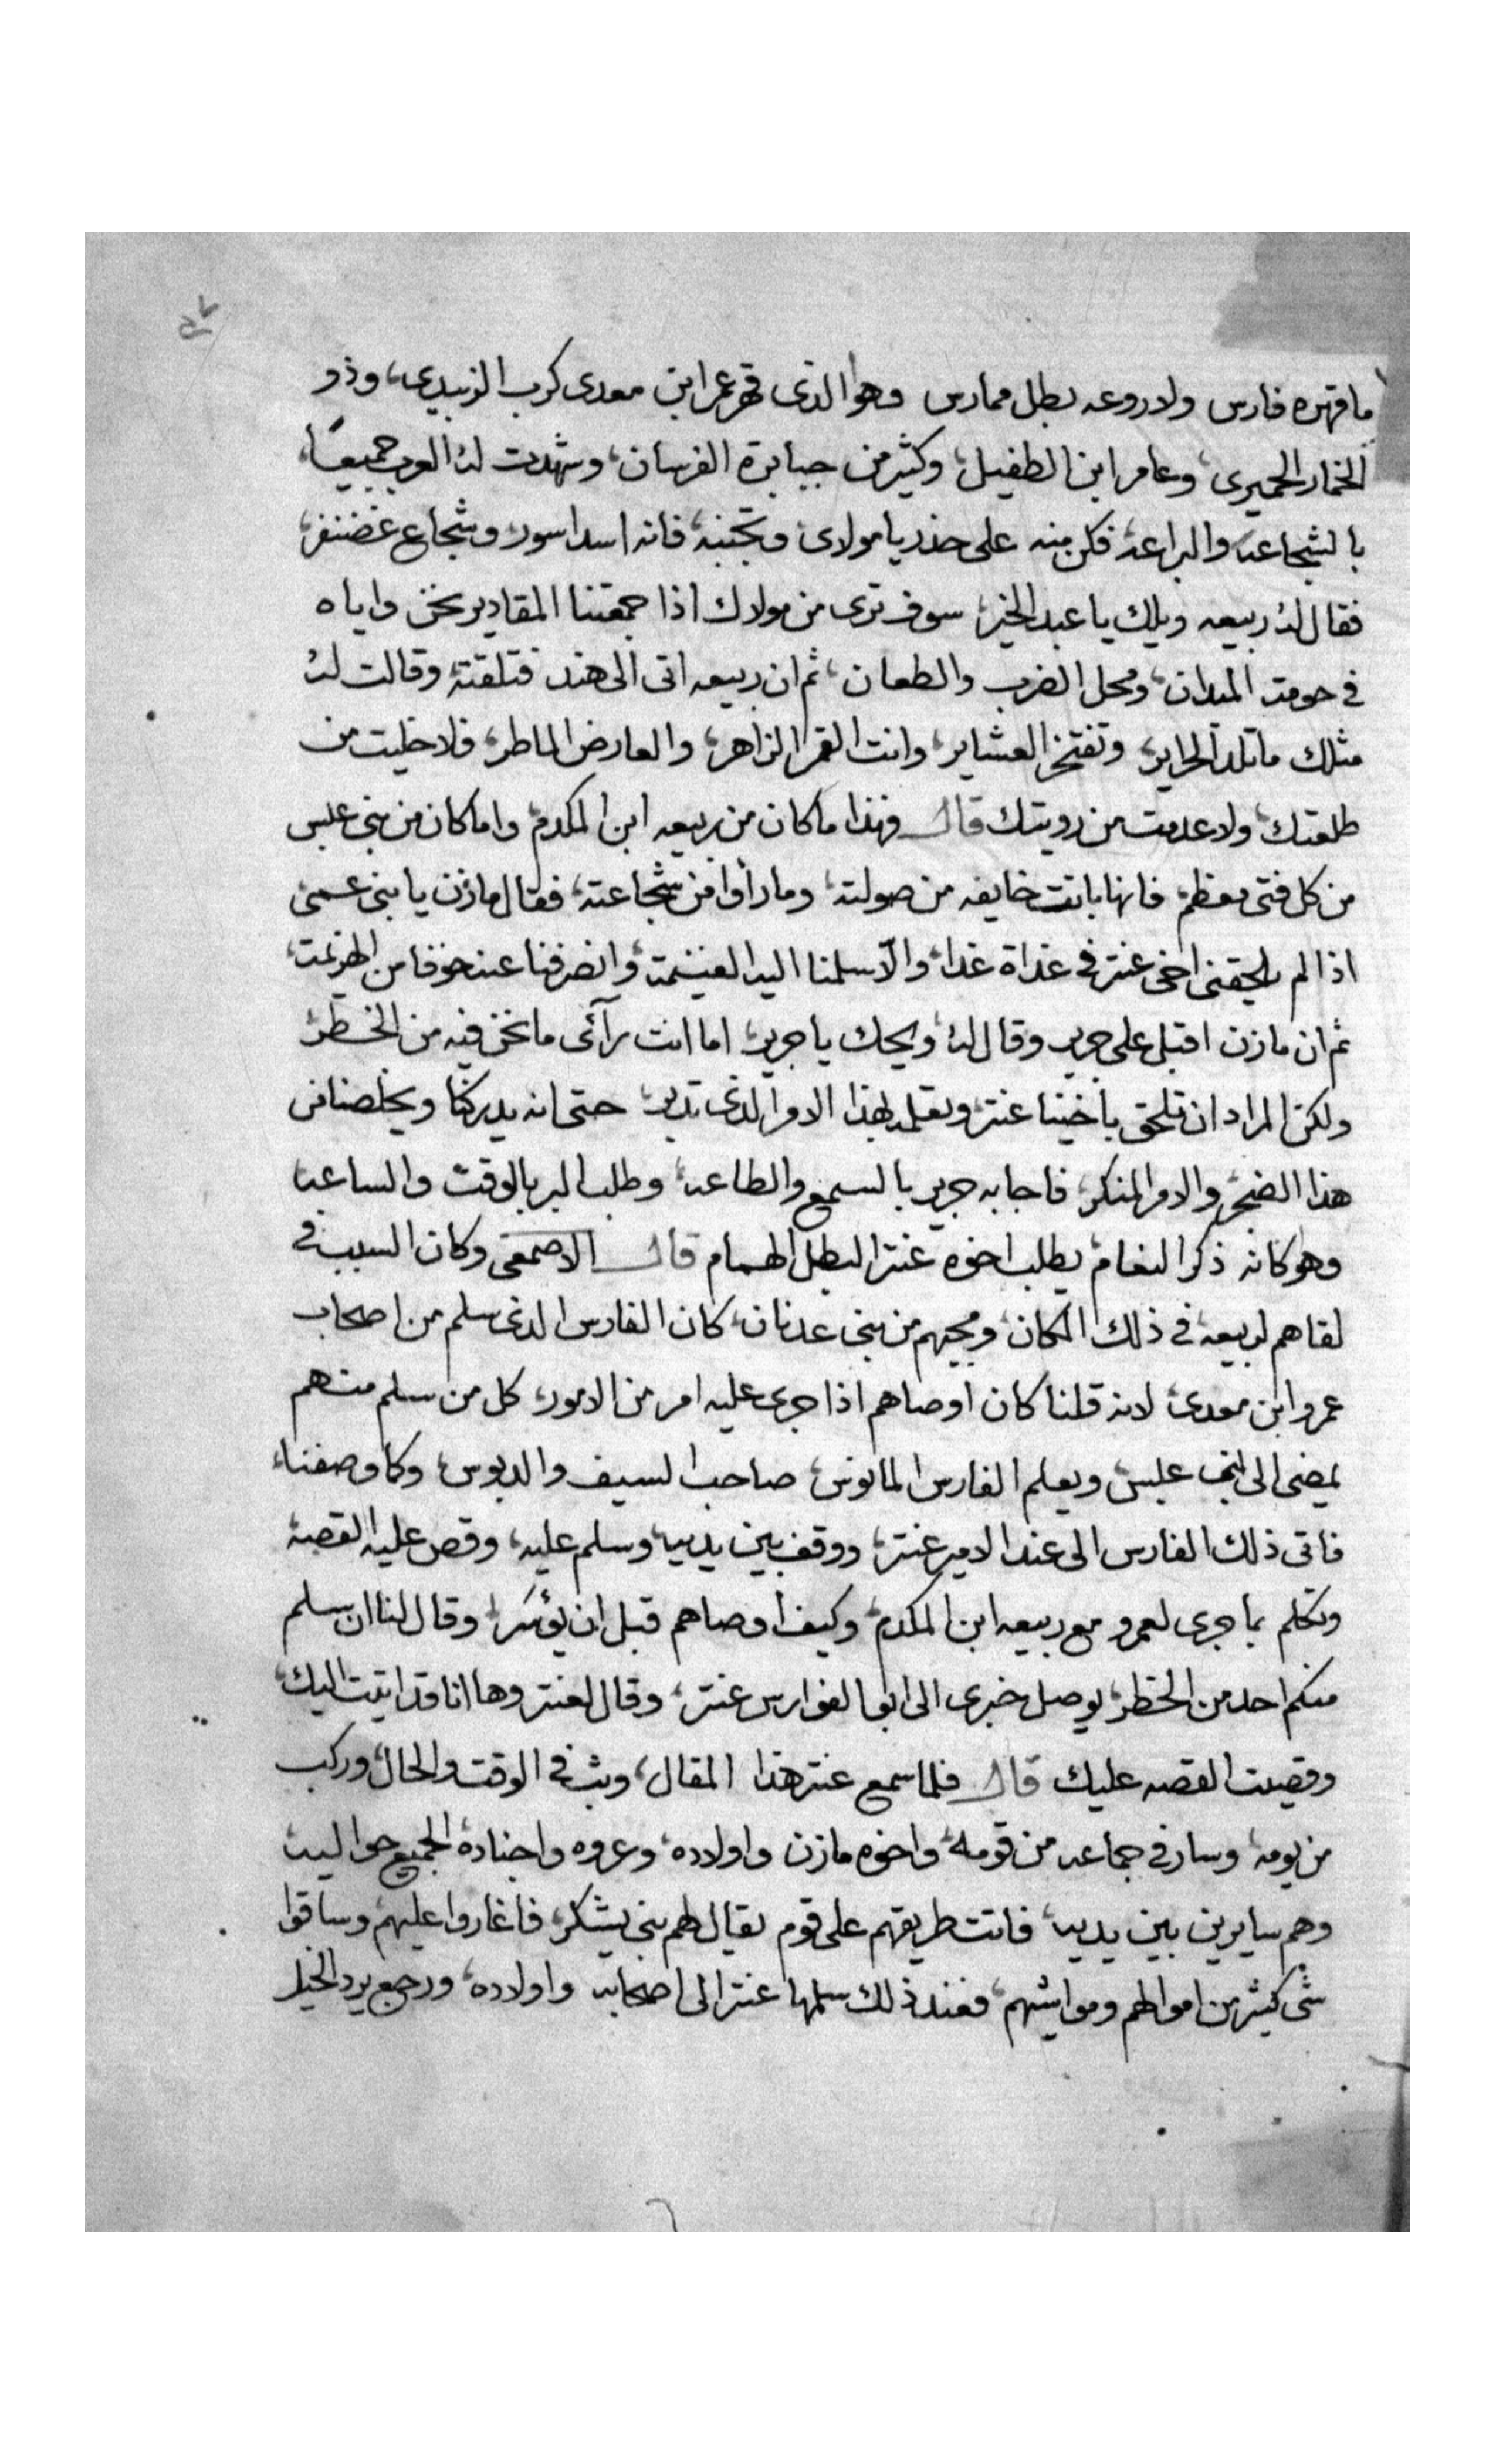 ما قهره فارس ولا روعه بطل ممارس وهو الذى قهر عمر ابن معدى كرب الزبيدى، وذو
الخمار الحميرى، وعامر ابن الطفيل، وكثير من جبابرة الفرسان، وشهدت له العرب جميعًا،
بالشجاعه والبراعه، فكن منه على حذر يا مولاى وتجنبه، فانه اسد اسود، وشجاع غضنفر،
فقال له ربيعه ويلك يا عبد الخير، سوف ترى من مولاك اذا جمعتنا المقادير نحن واياه
فى حومة الميدان، ومحل الضرب والطعان، ثم ان ربيعه اتى الى هند فتلقته وقالت له
مثلك ما تلد الحراير، وتفتخر العشاير، وانت القمر الزاهر، والعارض الماطر، فلا خليت من
طلعتك، ولا عدمت من رويتك قال فهذا ما كان من ربيعه ابن المكدم، واما كان من بنى عبس
من كل فتى معظم، فانها باتت خايفه من صولته، وما رأوا من شجاعته، فقال مازن يا بنى عمى
اذا لم يلحقنى اخى عنتر فى غداة غدا، والّا سلمنا اليه الغنيمه، وانصرفنا عنه خوفا من الهزيمه،
ثم ان مازن اقبل على جرير وقال له، ويحك يا جرير، اما انت رآئى ما نحن فيه من الخطر،
ولكن المراد ان تلحق باخينا عنتر، وتعلمه بهذا الامر الذى تدبر، حتى انه يدركنا ويخلصنا من
هذا الضجر، والامر المنكر، فاجابه جرير بالسمع والطاعه، وطلب البر بالوقت والساعه
وهو كانه ذكر النعام، يطلب اخوه عنتر البطل الهمام قال الاصمعى وكان السبب فى
لقاهم لربيعه، فى ذلك المكان، ومجيهم من بنى عدنان، كان الفارس الذى سلم من اصحاب
عمرو ابن معدى، لانه قلنا كان اوصاهم اذا جرى عليه امر من الامور، كل من سلم منهم
يمضى الى بنى عبس، ويعلم الفارس المانوس، صاحب السيف والدبوس، وكما وصفنا،
فاتى ذلك الفارس الى عند الامير عنتر، ووقف بين يديه، وسلم عليه، وقص عليه القصه
وتكلم بما جرى لعمرو مع ربيعه ابن المكدم، وكيف اوصاهم قبل ان يؤسر، وقال لنا ان سلم
منكم احد من الخطر، يوصل خبرى الى ابو الفوارس عنتر، وقال لعنتر وها انا قد اتيت اليك،
وقصيت القصه عليك قال فلما سمع عنتر هذا المقال، وثب فى الوقت والحال، وركب
من يومه، وسار فى جماعه من قومه، واخوه مازن واولاده، وعروه واجناده، الجميع حواليه
وهم سايرين بين يديه، فاتت طريقهم على قوم يقال لهم بنى يشكر، فاغاروا عليهم، وساقوا
شى كثير من اموالهم ومواشيهم، فعند ذلك سلمها عنتر الى اصحابه واولاده، ورجع يرد الخيل